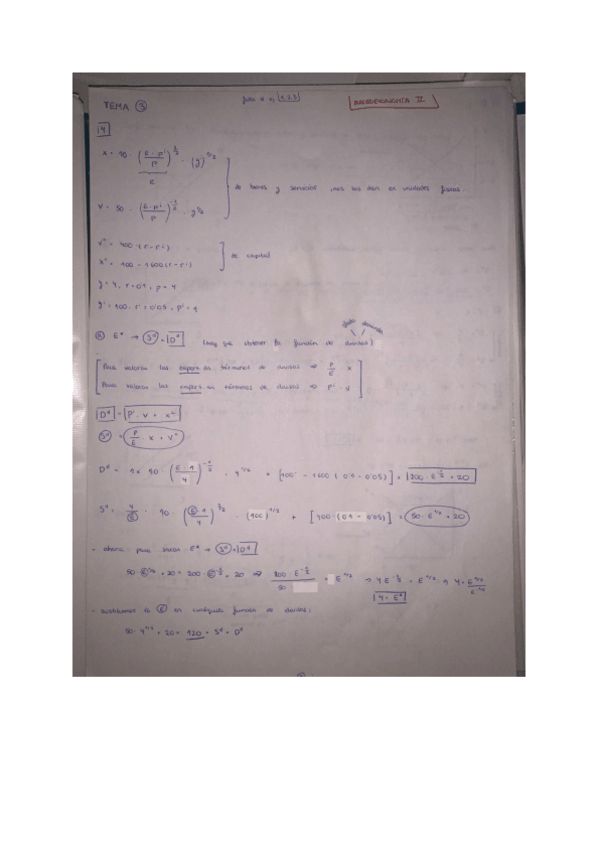 TEMA ③
MACROECONOMÍA II
4
X = 10 · (E · P* / P)^3/2 · (y*)^1/2
R
V = 50 · (E · P* / P)^-1/2 · y^1/2
de bienes y servicios, nos los dan en unidades físicas.
V^k = 400 · (r - r*)
X^k = 100 - 1600 (r - r*)
de capital
y = 4, r = 0'1, P = 4
y* = 100, r* = 0'05, P* = 1
E^e → S^d = D^d
(hay que obtener la función de divisas)
demanda
Para valorar las en términos de divisas ⇒ P/E · X
Para valorar las en términos de divisas ⇒ P* · V
D^d = P* · V + X^k
S^d = P/E · X + V^k
D^d = 1 × 50 · (E · 1 / 4)^-1/2 · 4^1/2 + [100 - 1600 (0'1 - 0'05)] = 200 · E^-1/2 + 20
S^d = 4/E · 10 · (E · 1 / 4)^3/2 · (100)^1/2 + [400 · (0'1 - 0'05)] = 50 · E^1/2 + 20
- ahora para sacar E^e → S^d = D^d
50 · E^1/2 + 20 = 200 · E^-1/2 + 20 ⇒ 200 · E^-1/2 / 50 = E^1/2 → 4 E^-1/2 = E^1/2 → 4 = E^1/2 / E^-1/2
4 = E^e
- sustituimos la E en cualquier función de divisas:
50 · 4^1/2 + 20 = 120 = S^d = D^d